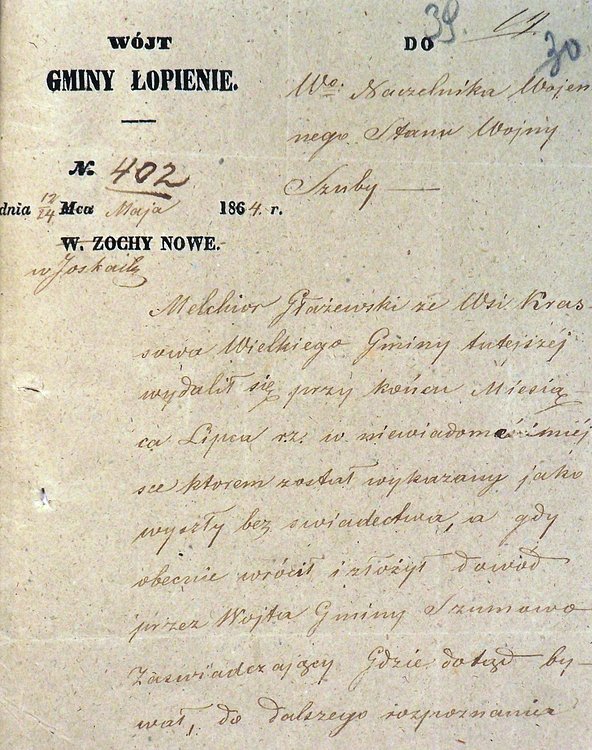 39
30
WÓJT
GMINY ŁOPIENIE.
DO
Wo. Naczelnika Wojen
nego Stanu Wojny
Szuby
N. 402
dnia 12/24 Mca Maja 1864 r.
W. ZOCHY NOWE.
w
Melchior Głażewski ze Wsi Kras
sowa Wielkiego Gminy tutejszej
wydalił się przy końcu Miesią
ca Lipca rz. w niewiadome miej
sce ktorem został wykazany jako
wyszły bez swiadectwa, a gdy
obecnie wrócił i złóżył dowód
przez Wojta Gminy Szumowo
Zaswiadczający Gdzie dotąd by-
wał, do dalszego rozpoznania